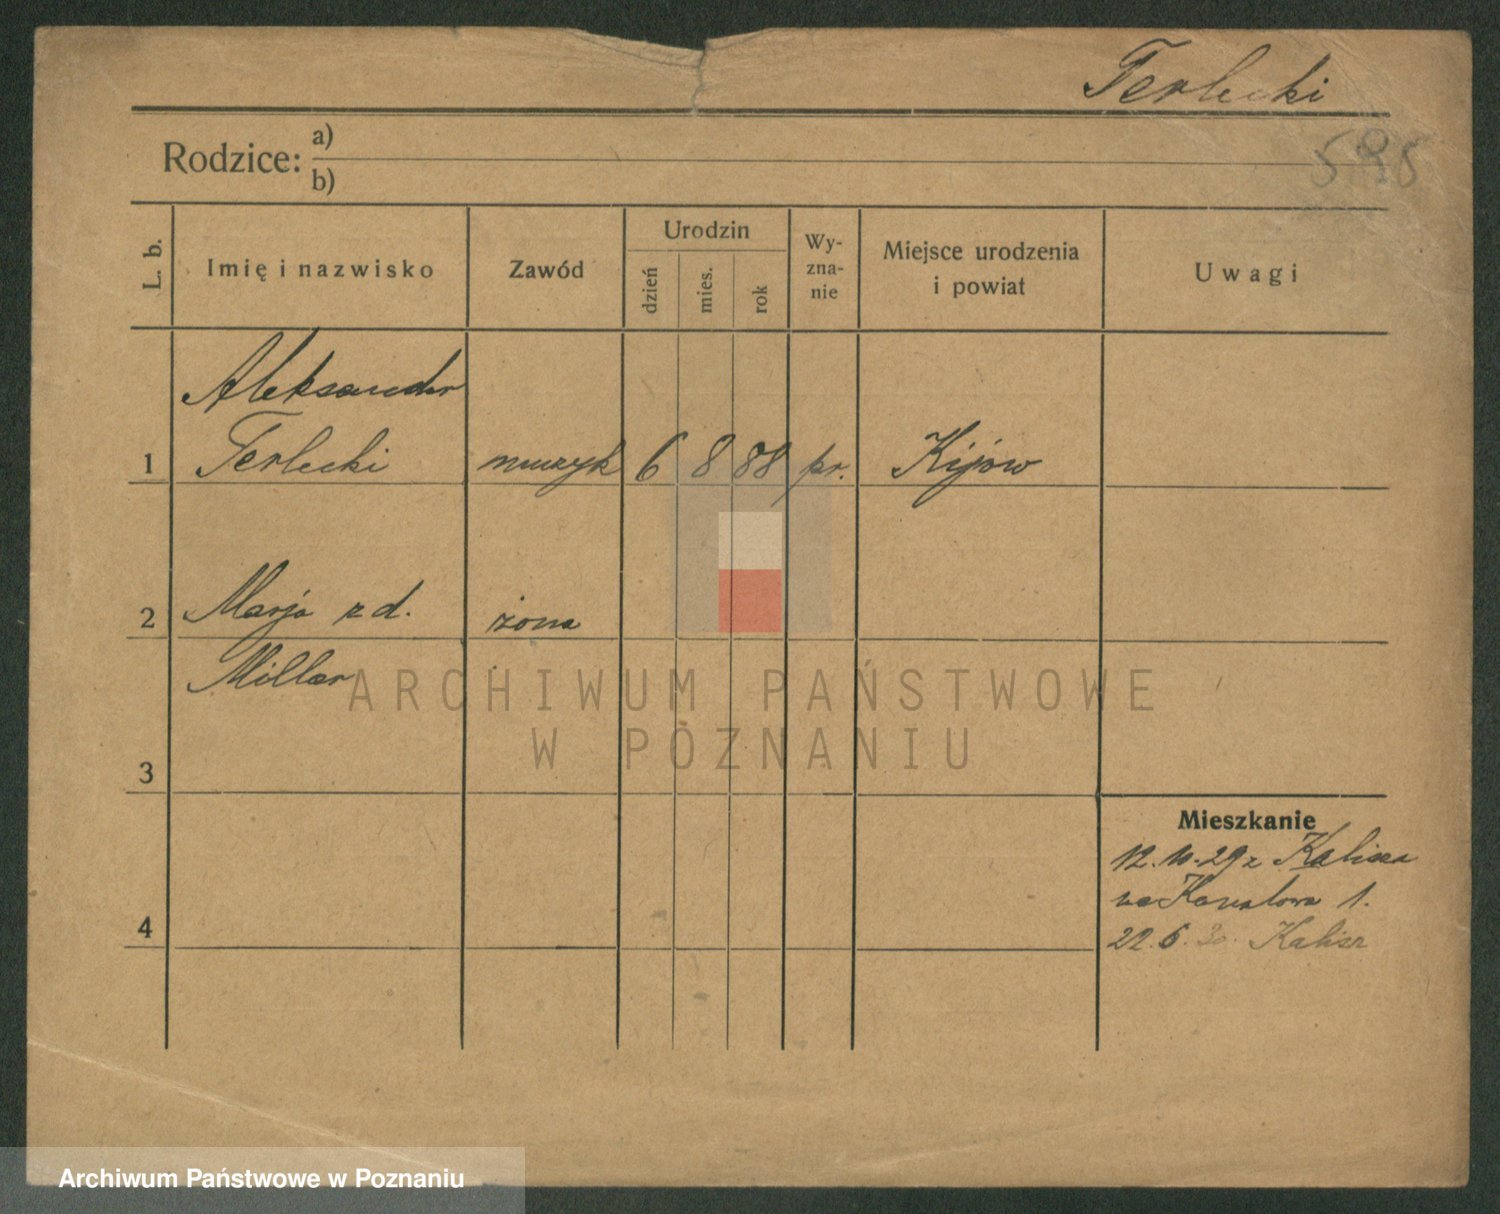 Terlecki
595
Rodzice: a)
b)
L. b.
Imię i nazwisko
Zawód
Urodzin
dzień
mies.
rok
Wy-
zna-
nie
Miejsce urodzenia
i powiat
Uwagi
Aleksander
1 Terlecki muzyk 6 8 88 pr. Kijów
2 Marja z d. żona
Miller
3
Mieszkanie
12.10.29 z Kalisza
na Kanałowa 1.
4
22.6.30. Kalisz
ARCHIWUM PAŃSTWOWE
W POZNANIU
Archiwum Państwowe w Poznaniu